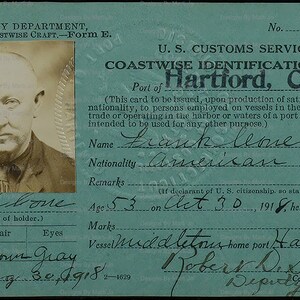 Y DEPARTMENT,
STWISE CRAFT.—FORM E.
No.
U. S. CUSTOMS SERVIC
COASTWISE IDENTIFICATION
Port of Hartford, C
(This card to be issued, upon production of sat
nationality, to persons employed on vessels in the
trade of operating in the harbor or waters of a port
intended to be used for any other purpose.)
Name Frank
Nationality American
Remarks
(If declarant of U. S. citizenship, so sta
Age 53 on Oct 30, 1918, h
of holder.)
air Eyes
Gray
30, 1918
2—4629
Marks
Vessel Middletown home port Ha
Robert D.
Deputy